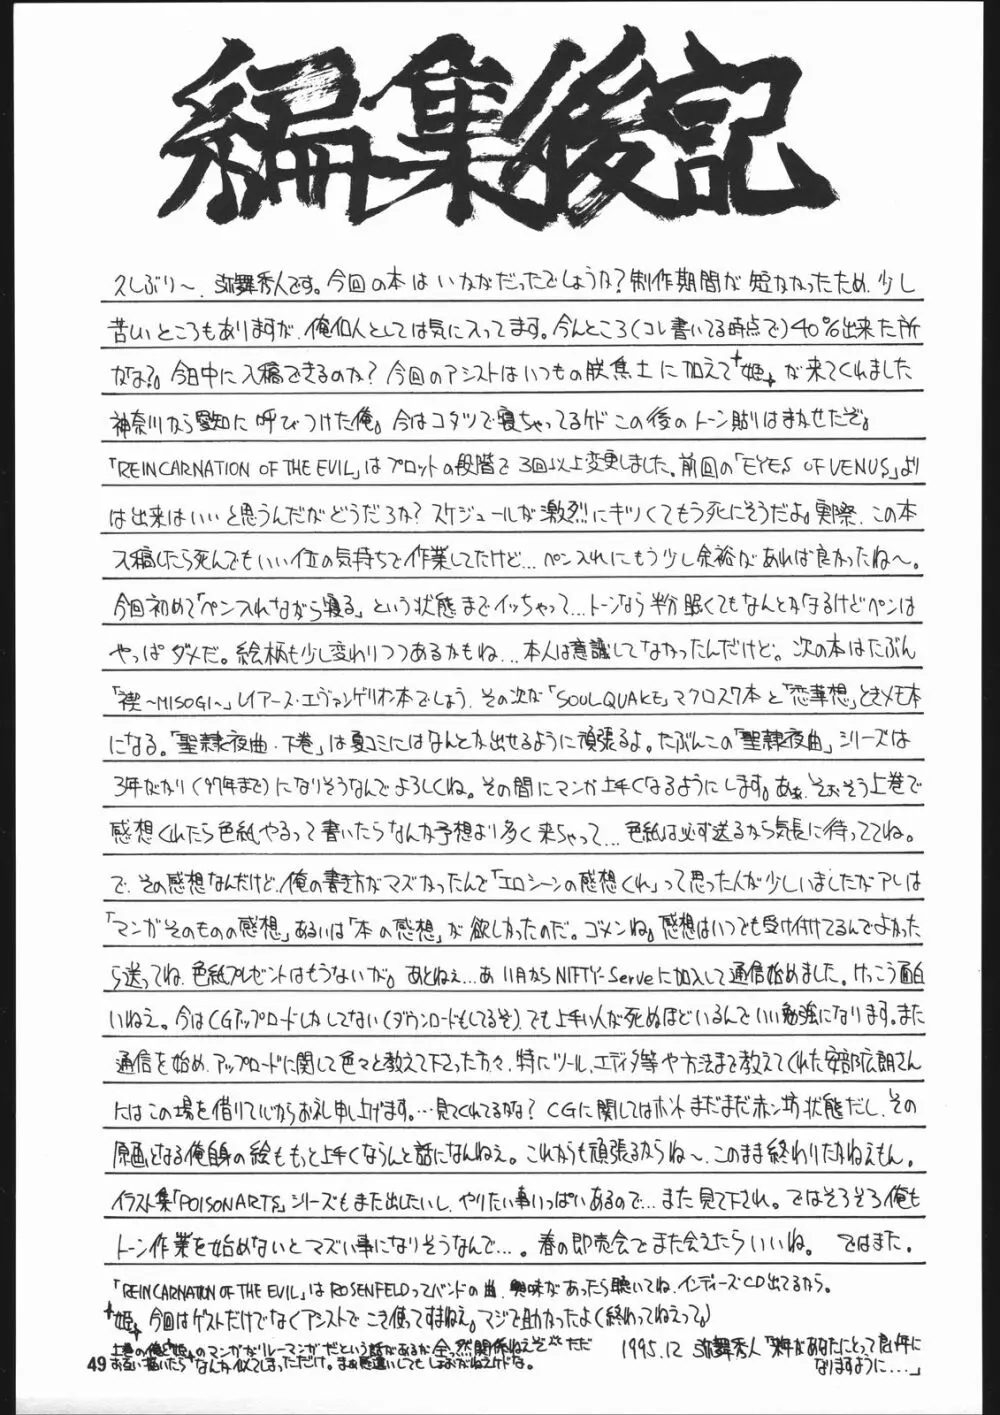 編集後記
久しぶり〜、弥舞秀人です。今回の本はいかがだったでしょうか?制作期間が短かかったため、少し
苦しいところもありますが、俺個人としては気に入ってます。今んところ(コレ書いてる時点で)40%出来た所
かな?。今日中に入稿できるのか?今回のアシストはいつもの朕焦土に加えて†姫†が来てくれました
神奈川から愛知に呼びつけた俺。今はコタツで寝ちゃってるケドこの後のトーン貼りはまかせたぞ。
「REINCARNATION OF THE EVIL」はプロットの段階で3回以上変更しました。前回の「EYES OF VENUS」より
は出来はいいと思うんだがどうだろか?スケジュールが激烈にキツくてもう死にそうだよ。実際、この本
入稿したら死んでもいい位の気持ちで作業してたけど…ペン入れにもう少し余裕があれば良かったね〜。
今回初めて「ペン入れながら寝る」という状態までイッちゃって…トーンなら半分眠くてもなんとかなるけどペンは
やっぱダメだ。絵柄も少し変わりつつあるかもね…本人は意識してなかったんだけど。次の本はたぶん
「禊〜MISOGI〜」レイアース・エヴァンゲリオン本でしょう。その次が「SOUL QUAKE」マクロス7本と「恋華想」ときメモ本
になる。「聖隷夜曲・下巻」は夏コミにはなんとか出せるように頑張るよ。たぶんこの「聖隷夜曲」シリーズは
3年がかり(97年まで)になりそうなんでよろしくね。その間にマンガ上手くなるようにします。あぁ、そおそう上巻で
感想くれたら色紙やるって書いたらなんか予想より多く来ちゃって…色紙は必ず送るから気長に待っててね。
で、その感想なんだけど、俺の書き方がマズかったんで「エロシーンの感想くれ」って思った人が少しいましたがアレは
「マンガそのものの感想」あるいは「本の感想」が欲しかったのだ。ゴメンね。感想はいつでも受け付けてるんでよかった
ら送ってね、色紙プレゼントはもうないが。あとねぇ…あ、11月からNIFTY-Serveに加入して通信始めました。けっこう面白
いねえ。今はCGアップロードしかしてない(ダウンロードもしてるぞ)、でも上手い人が死ぬほどいるんでいい勉強になります。また
通信を始め、アップロードに関して色々と教えて下さった方々、特にツール、エディタ等や方法まで教えてくれた安部広朗さん
にはこの場を借りて心からお礼申し上げます。…見てくれてるかな?CGに関してはホントまだまだ赤ン坊状態だし、その
原画となる俺自身の絵ももっと上手くならんと話になんねえ。これからも頑張るからね〜、このまま終わりたかねえもん。
イラスト集「POISON ARTS」シリーズもまた出したいし、やりたい事いっぱいあるので…また見て下され。ではそろそろ俺も
トーン作業を始めないとマズい事になりそうなんで…。春の即売会でまた会えたらいいね。ではまた。
「REINCARNATION OF THE EVIL」はROSENFELDってバンドの曲、興味があったら聴いてね、インディーズCD出てるから。
†姫†今回はゲストだけでなくアシストでこき使ってすまねえ。マジで助かったよ(終わってねえって)
上巻の俺と†姫†のマンガがリレーマンガだという話があるが全っ然関係ねえぞ。ただ
お互い描いたらなんか似てしまっただけ。まぁ勘違いしてもしょおがねえけどな。
1995.12 弥舞秀人「来年があなたにとって良い年に
なりますように…」
49